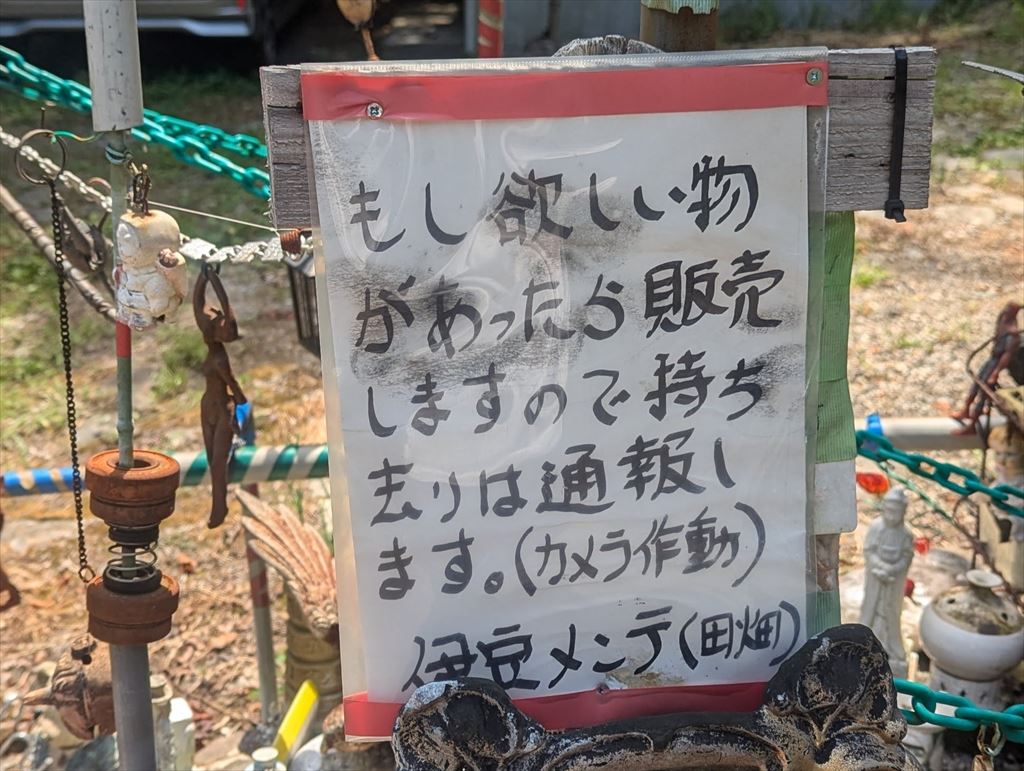 もし欲しい物
があったら販売
しますので持ち
去りは通報し
ます。(カメラ作動)
伊豆メンテ(田畑)